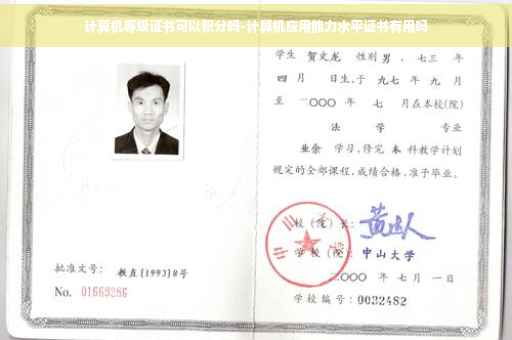 计算机等级证书可以积分吗-计算机应用能力水平证书有用吗
学生 贺文龙 性别 男 、七三 年
四 月 日生,于 九七 年 九 月
至 二〇〇〇 年 七 月在本校(院)
法 学 专业
业余 学习,修完 本 科教学计划
规定的全部课程,成绩合格,准予毕业。
校(院)长:
学校(院): 中山大学
二〇〇〇 年 七 月 一 日
批准文号: 教直[1993]8号
No. 01669286
学校编号: 0032482